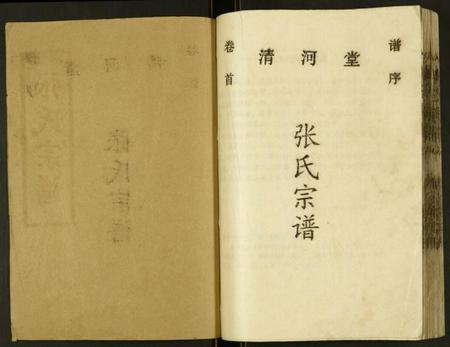 卷首
清河堂
谱序
张氏宗谱